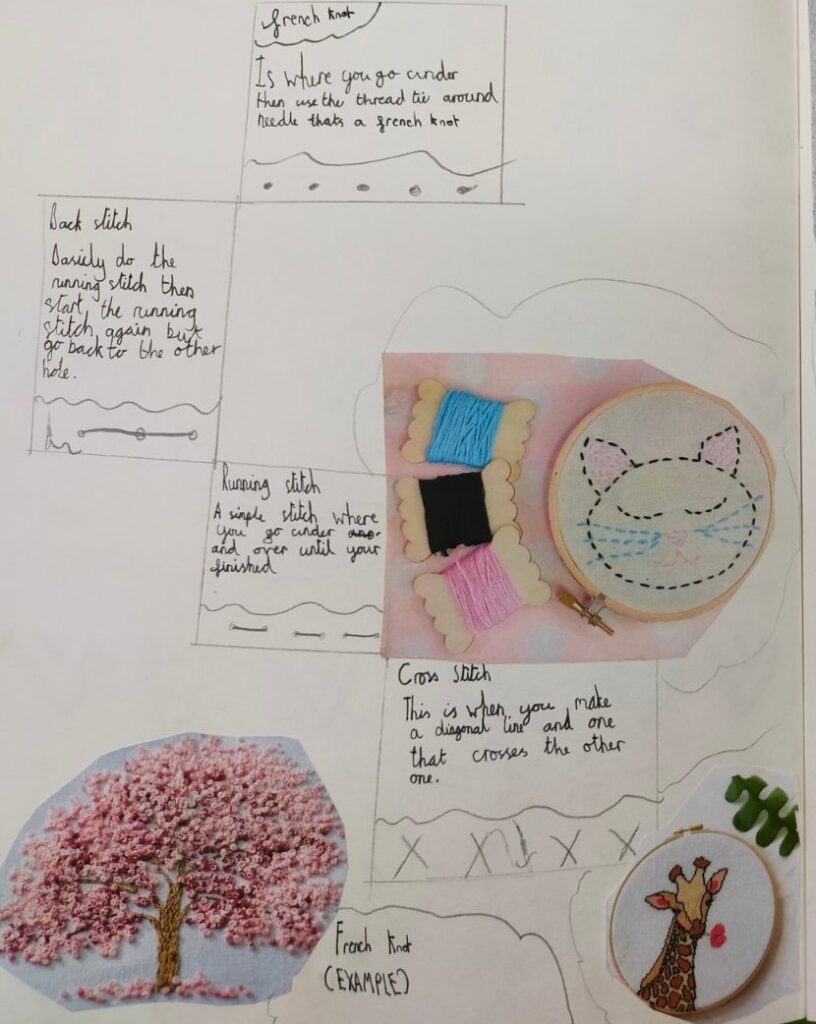 french knot
Is where you go under
then use the thread tie around
needle thats a french knot
Back stitch
Basicly do the
running stitch then
start the running
stitch again but
go back to the other
hole.
Running stitch
A simple stitch where
you go under
and over until your
finished
Cross Stitch
This is when you make
a diagonal line and one
that crosses the other
one.
French knot
(EXAMPLE)